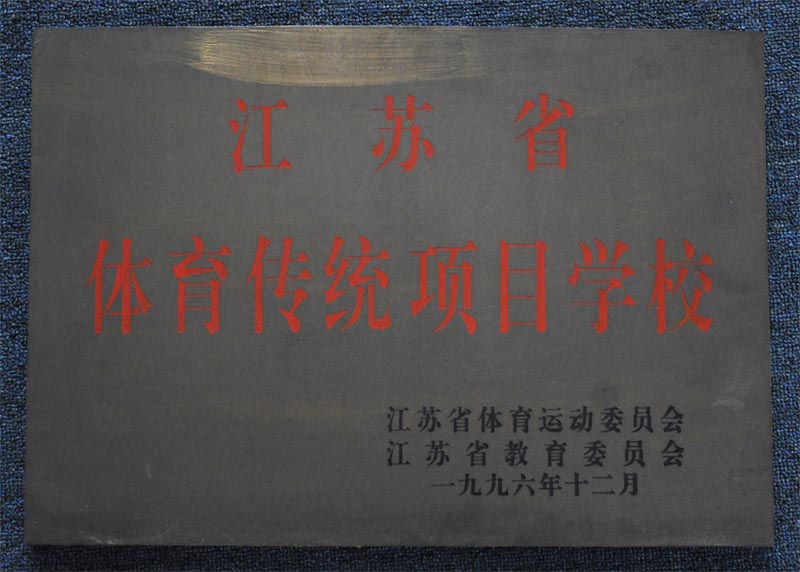 江苏省
体育传统项目学校
江苏省体育运动委员会
江苏省教育委员会
一九九六年十二月